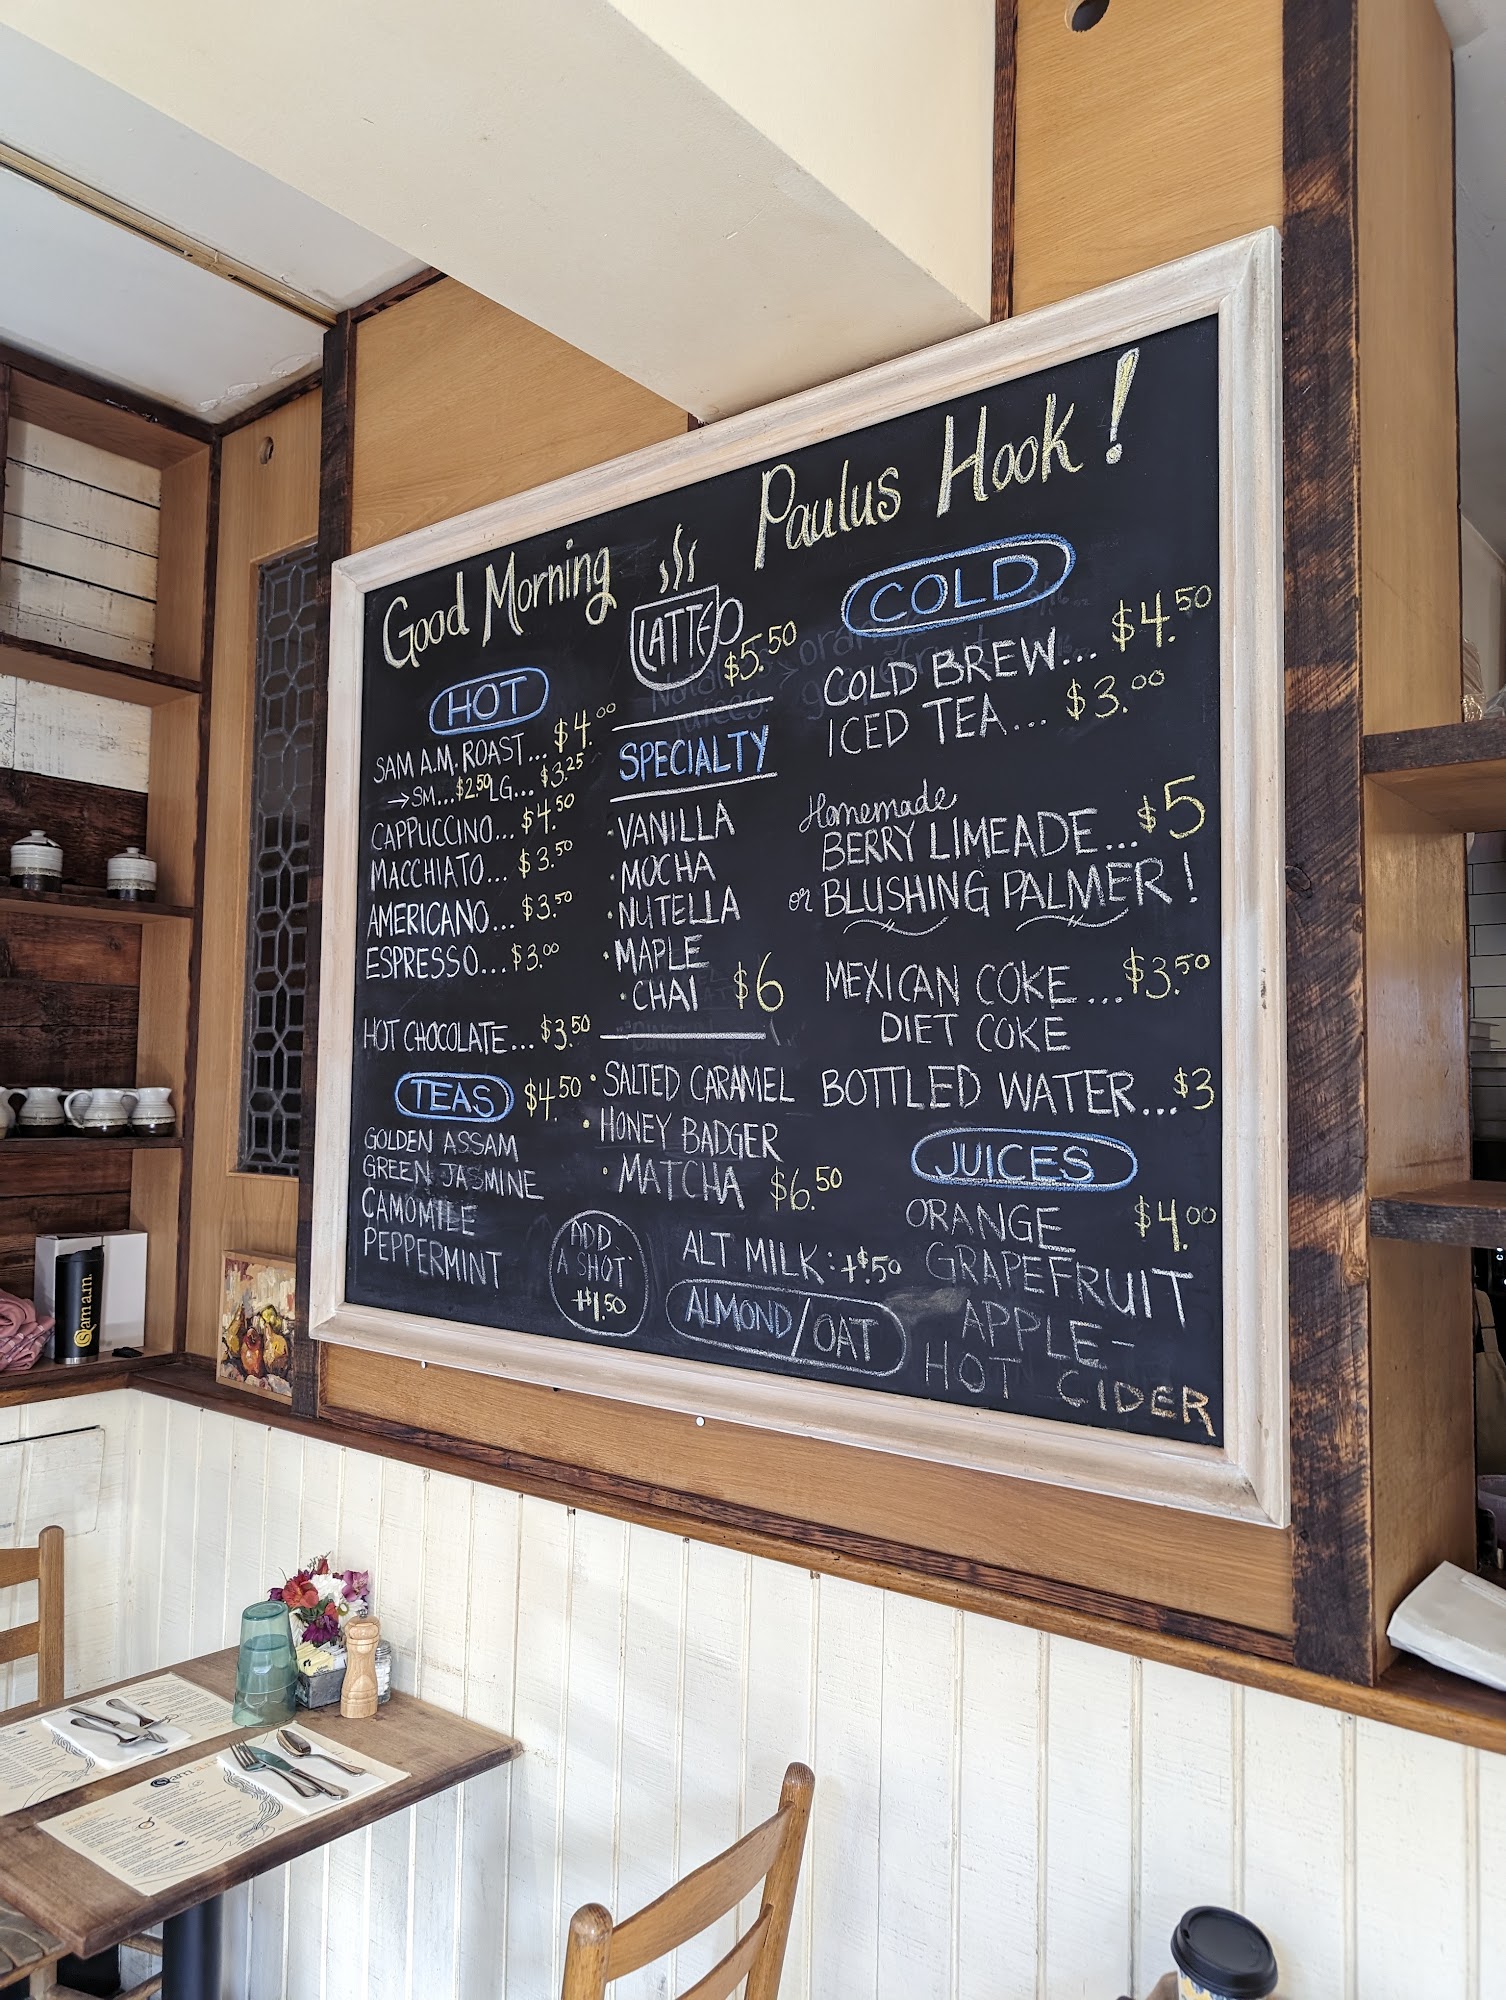 Good Morning Paulus Hook!
HOT
SAM A.M. ROAST... $4.00
→SM...$2.50 LG... $3.25
CAPPUCCINO... $4.50
MACCHIATO... $3.50
AMERICANO... $3.50
ESPRESSO... $3.00
HOT CHOCOLATE... $3.50
TEAS $4.50
GOLDEN ASSAM
GREEN JASMINE
CAMOMILE
PEPPERMINT
LATTE
$5.50
SPECIALTY
·VANILLA
·MOCHA
·NUTELLA
·MAPLE
·CHAI $6
·SALTED CARAMEL
·HONEY BADGER
·MATCHA $6.50
ADD
A SHOT
+$1.50
ALT MILK: +$.50
ALMOND/OAT
COLD
COLD BREW... $4.50
ICED TEA... $3.00
Homemade
BERRY LIMEADE... $5
or BLUSHING PALMER!
MEXICAN COKE... $3.50
DIET COKE
BOTTLED WATER... $3
JUICES
ORANGE $4.00
GRAPEFRUIT
APPLE-
HOT CIDER
Sam a.m.
Sam a.m.